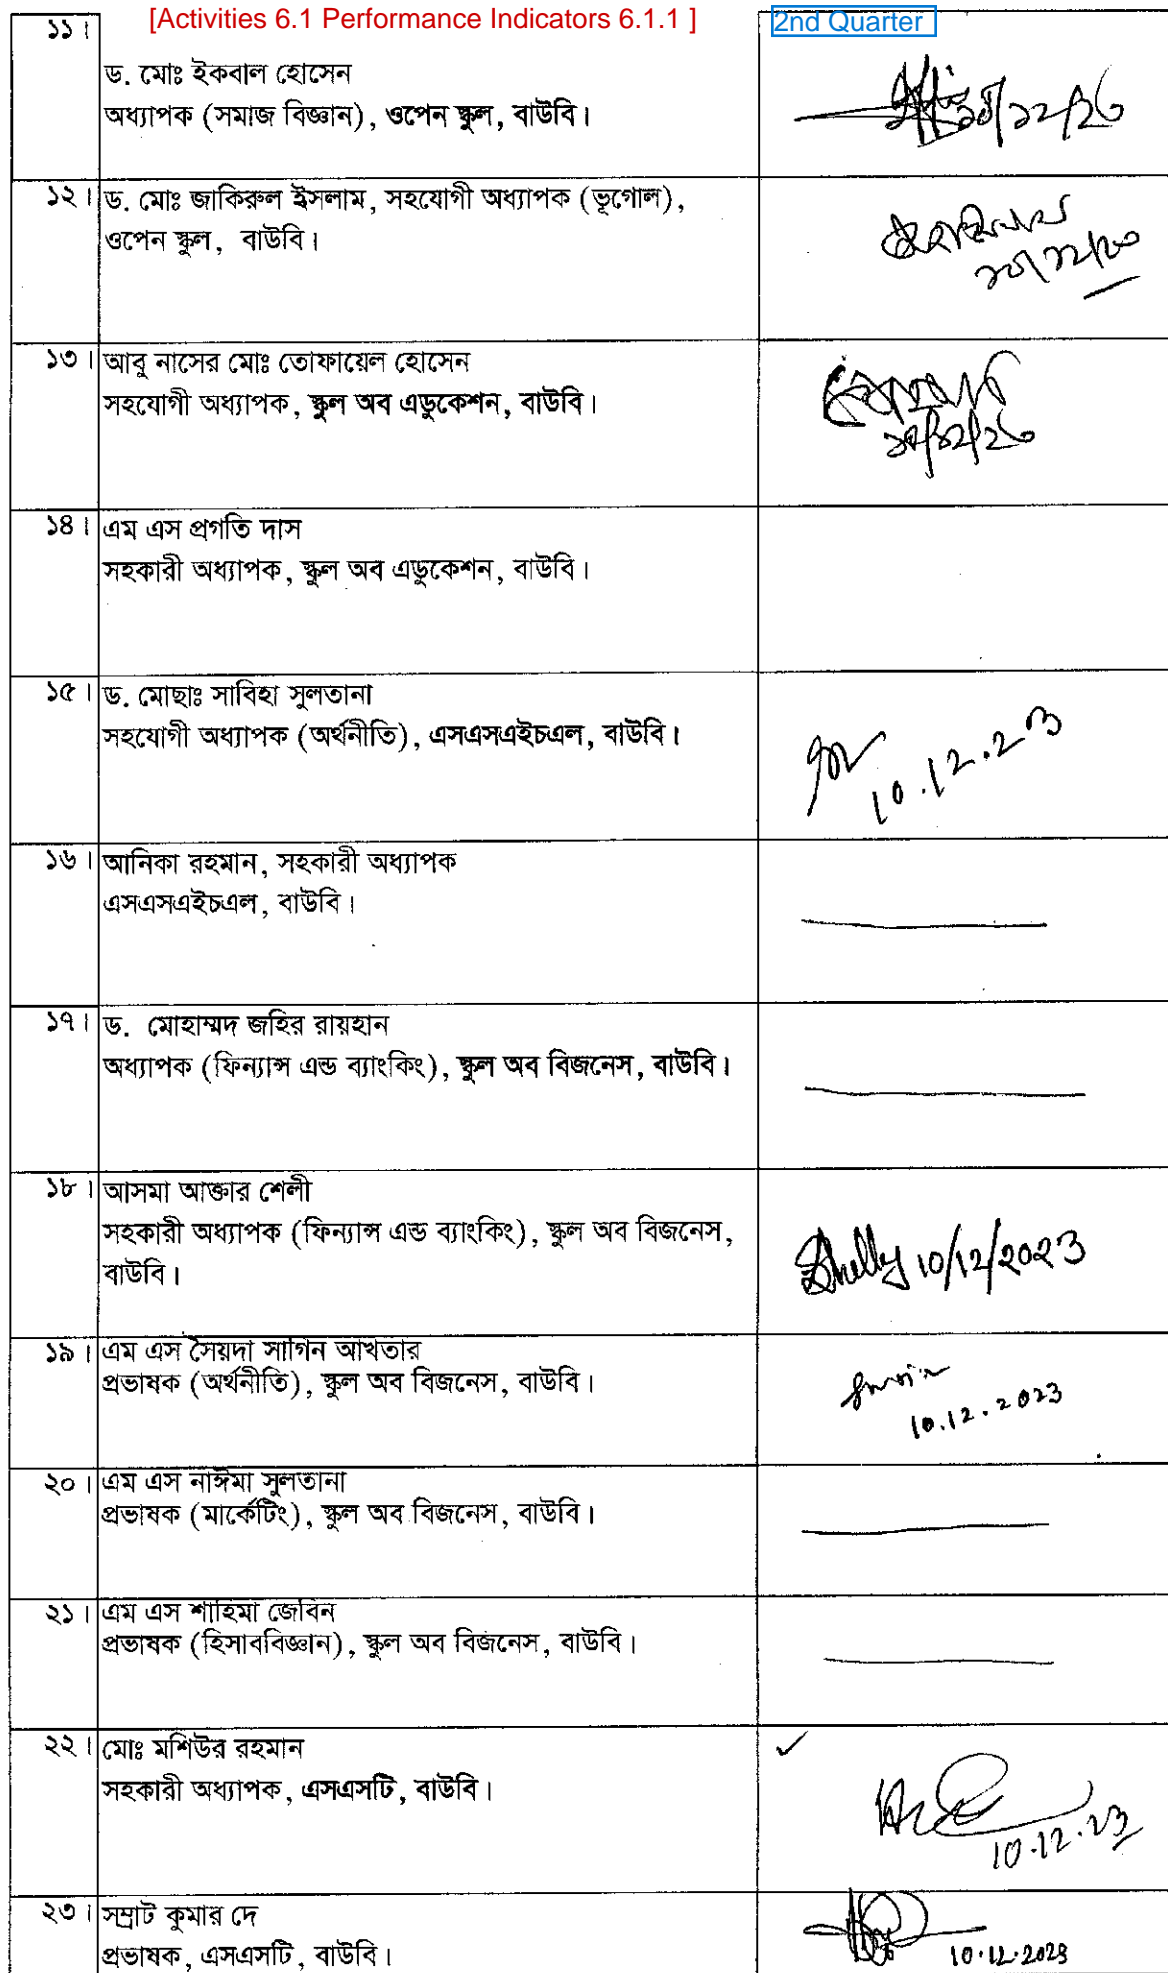 [Activities 6.1 Performance Indicators 6.1.1 ]
2nd Quarter
১১।
ড. মোঃ ইকবাল হোসেন
অধ্যাপক (সমাজ বিজ্ঞান), ওপেন স্কুল, বাউবি।
১২। ড. মোঃ জাকিরুল ইসলাম, সহযোগী অধ্যাপক (ভূগোল),
ওপেন স্কুল, বাউবি।
১৩। আবু নাসের মোঃ তোফায়েল হোসেন
সহযোগী অধ্যাপক, স্কুল অব এডুকেশন, বাউবি।
১৪। এম এস প্রগতি দাস
সহকারী অধ্যাপক, স্কুল অব এডুকেশন, বাউবি।
১৫। ড. মোছাঃ সাবিহা সুলতানা
সহযোগী অধ্যাপক (অর্থনীতি), এসএসএইচএল, বাউবি।
10.12.23
১৬। আনিকা রহমান, সহকারী অধ্যাপক
এসএসএইচএল, বাউবি।
১৭। ড. মোহাম্মদ জহির রায়হান
অধ্যাপক (ফিন্যান্স এন্ড ব্যাংকিং), স্কুল অব বিজনেস, বাউবি।
১৮। আসমা আক্তার শেলী
সহকারী অধ্যাপক (ফিন্যান্স এন্ড ব্যাংকিং), স্কুল অব বিজনেস,
বাউবি।
Shelly 10/12/2023
১৯। এম এস সৈয়দা সাগিন আখতার
প্রভাষক (অর্থনীতি), স্কুল অব বিজনেস, বাউবি।
10.12.2023
২০। এম এস নাঈমা সুলতানা
প্রভাষক (মার্কেটিং), স্কুল অব বিজনেস, বাউবি।
২১। এম এস শাহিমা জেবিন
প্রভাষক (হিসাববিজ্ঞান), স্কুল অব বিজনেস, বাউবি।
২২। মোঃ মশিউর রহমান
সহকারী অধ্যাপক, এসএসটি, বাউবি।
10.12.23
২৩। সম্রাট কুমার দে
প্রভাষক, এসএসটি, বাউবি।
10.12.2023